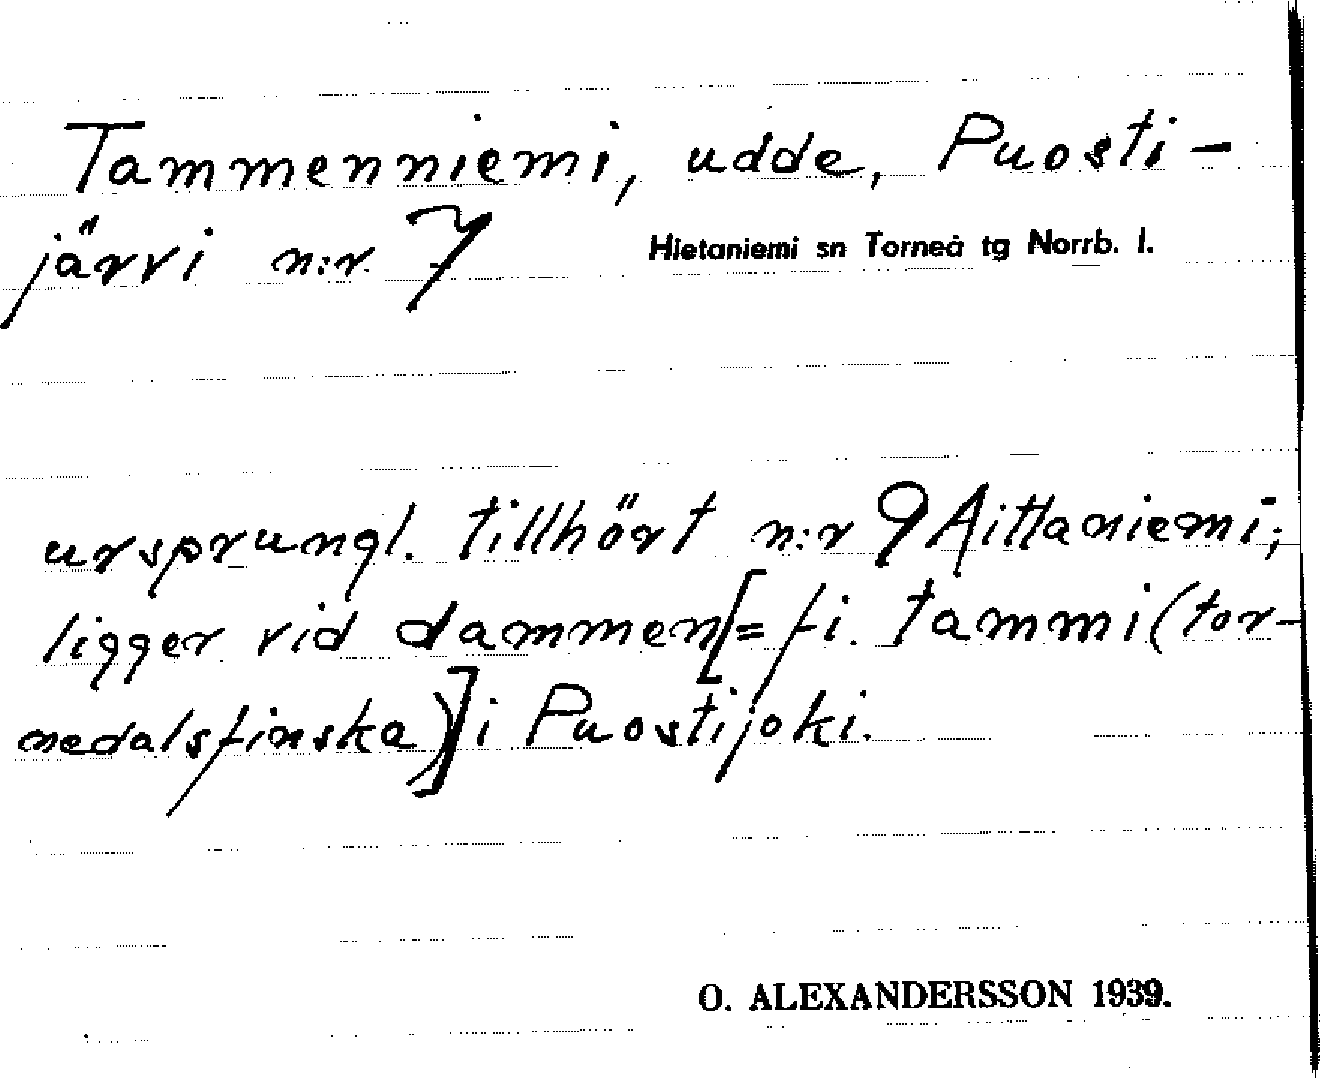 Tammenniemi, udde, Puosti-
järvi n:r. 7 Hietaniemi sn Torneå tg Norrb. l.
ursprungl. tillhört n:r 9 Aittaniemi;
ligger vid dammen [= fi. tammi (tor-
nedalsfinska)] i Puostijoki.
O. ALEXANDERSSON 1939.